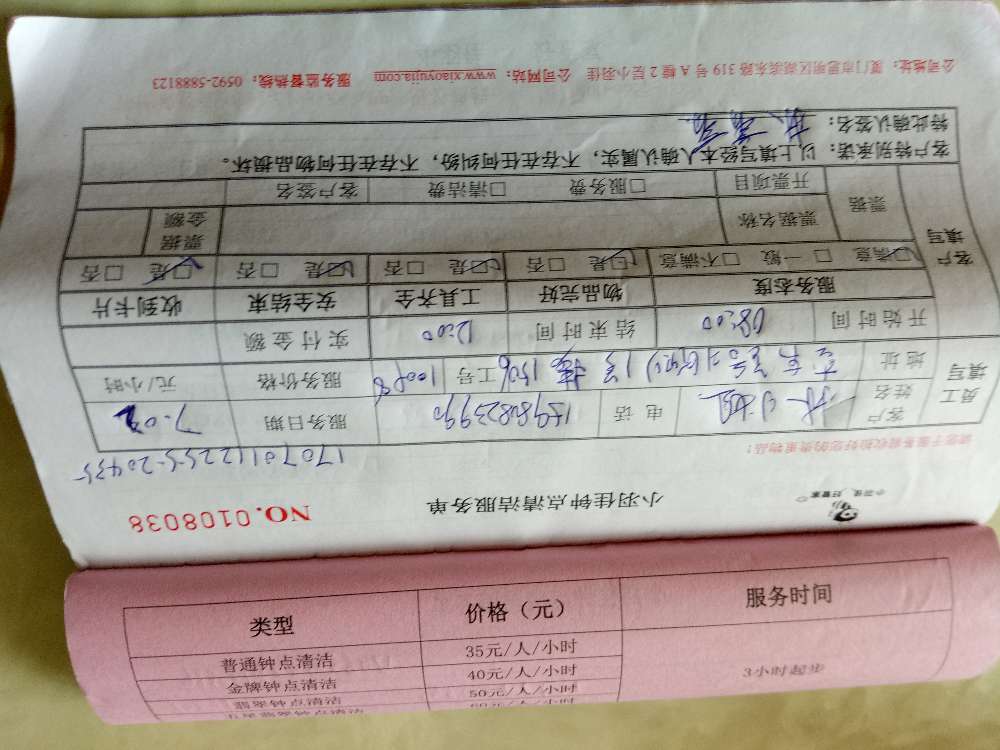 小羽佳钟点清洁服务单
NO.0108038
小羽佳，好管家
请您于服务前收拾好您的贵重物品！
员工填写
客户姓名
电话 15980823990
服务日期 7.02
地址
1506
工号
服务价格
元/小时
开始时间 08:00
结束时间 12:00
实付金额
客户填写
服务态度 物品完好 工具齐全 安全结束 收到卡片
☑满意 □一般 □不满意 ☑是 □否 ☑是 □否 ☑是 □否 ☑是 □否
票据
票据名称
票据金额
开票项目 □服务费 □清洁费 客户签名
客户特别承诺：以上填写经本人确认属实，不存在任何纠纷，不存在任何物品损坏。
特此确认签名：
公司地址：厦门市思明区湖滨东路319号A幢2层小羽佳 公司网站：www.xiaoyujia.com 服务监督热线：0592-5888123
类型 价格（元） 服务时间
普通钟点清洁 35元/人/小时
金牌钟点清洁 40元/人/小时
翡翠钟点清洁 50元/人/小时
3小时起步